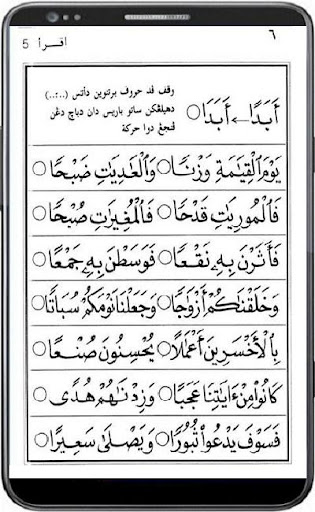 ٦ اقرأ 5
وقف قد حروف برتنوين دأتس (..:..)
دهيلڠكن ساتو باريس دان دباچ دڠن
ڤنجڠ دوا حركة
أَبَدًا ← أَبَدَا
يَوْمَ ٱلْقِيَٰمَةِ وَزْنًا ○ وَٱلْعَٰدِيَٰتِ ضَبْحًا ○
فَٱلْمُورِيَٰتِ قَدْحًا ○ فَٱلْمُغِيرَٰتِ صُبْحًا ○
فَأَثَرْنَ بِهِۦ نَقْعًا ○ فَوَسَطْنَ بِهِۦ جَمْعًا ○
وَخَلَقْنَٰكُمْ أَزْوَٰجًا ○ وَجَعَلْنَا نَوْمَكُمْ سُبَاتًا ○
بِٱلْأَخْسَرِينَ أَعْمَٰلًا ○ يُحْسِنُونَ صُنْعًا ○
كَانُوا۟ مِنْ ءَايَٰتِنَا عَجَبًا ○ وَزِدْنَٰهُمْ هُدًى ○
فَسَوْفَ يَدْعُوا۟ ثُبُورًا ○ وَيَصْلَىٰ سَعِيرًا ○